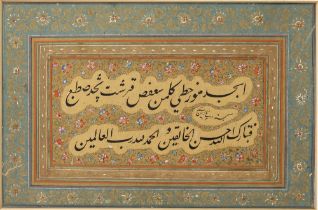 ابجد هوز حطی کلمن سعفص قرشت ثخذ ضظغ
فتبارک الله احسن الخالقین الحمد لله رب العالمین